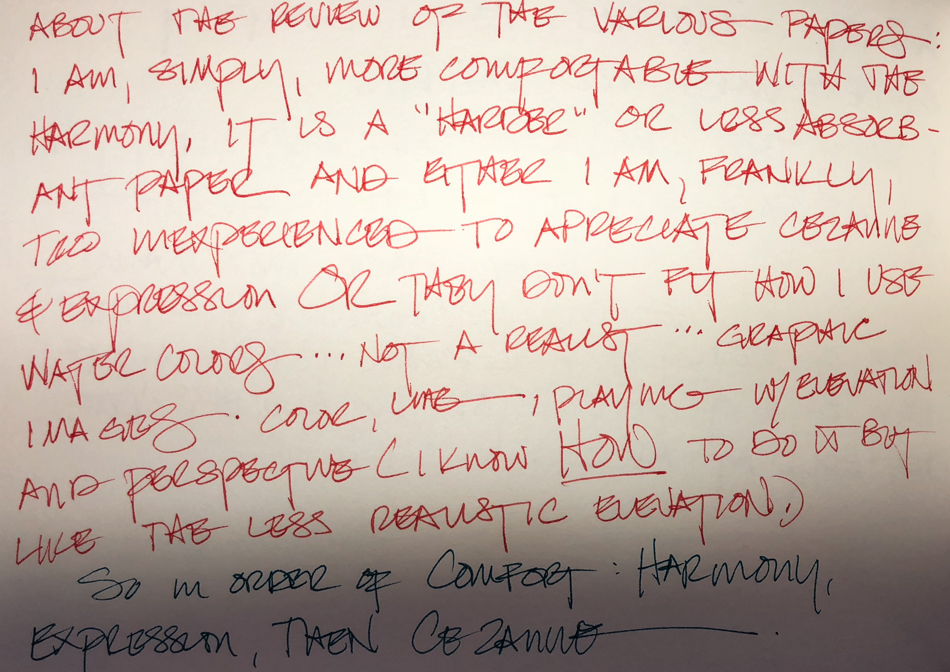 ABOUT THE REVIEW OF THE VARIOUS PAPERS:
I AM, SIMPLY, MORE COMFORTABLE WITH THE
HARMONY. IT IS A "HARDER" OR LESS ABSORB-
ANT PAPER AND EITHER I AM, FRANKLY,
TOO INEXPERIENCED TO APPRECIATE CEZANNE
& EXPRESSION OR THEY DON'T FIT HOW I USE
WATER COLORS ... NOT A REALIST ... GRAPHIC
IMAGES. COLOR, LINE, PLAYING W/ ELEVATION
AND PERSPECTIVE (I KNOW HOW TO DO IT BUT
LIKE THE LESS REALISTIC ELEVATION.)
SO IN ORDER OF COMFORT: HARMONY,
EXPRESSION, THEN CEZANNE.